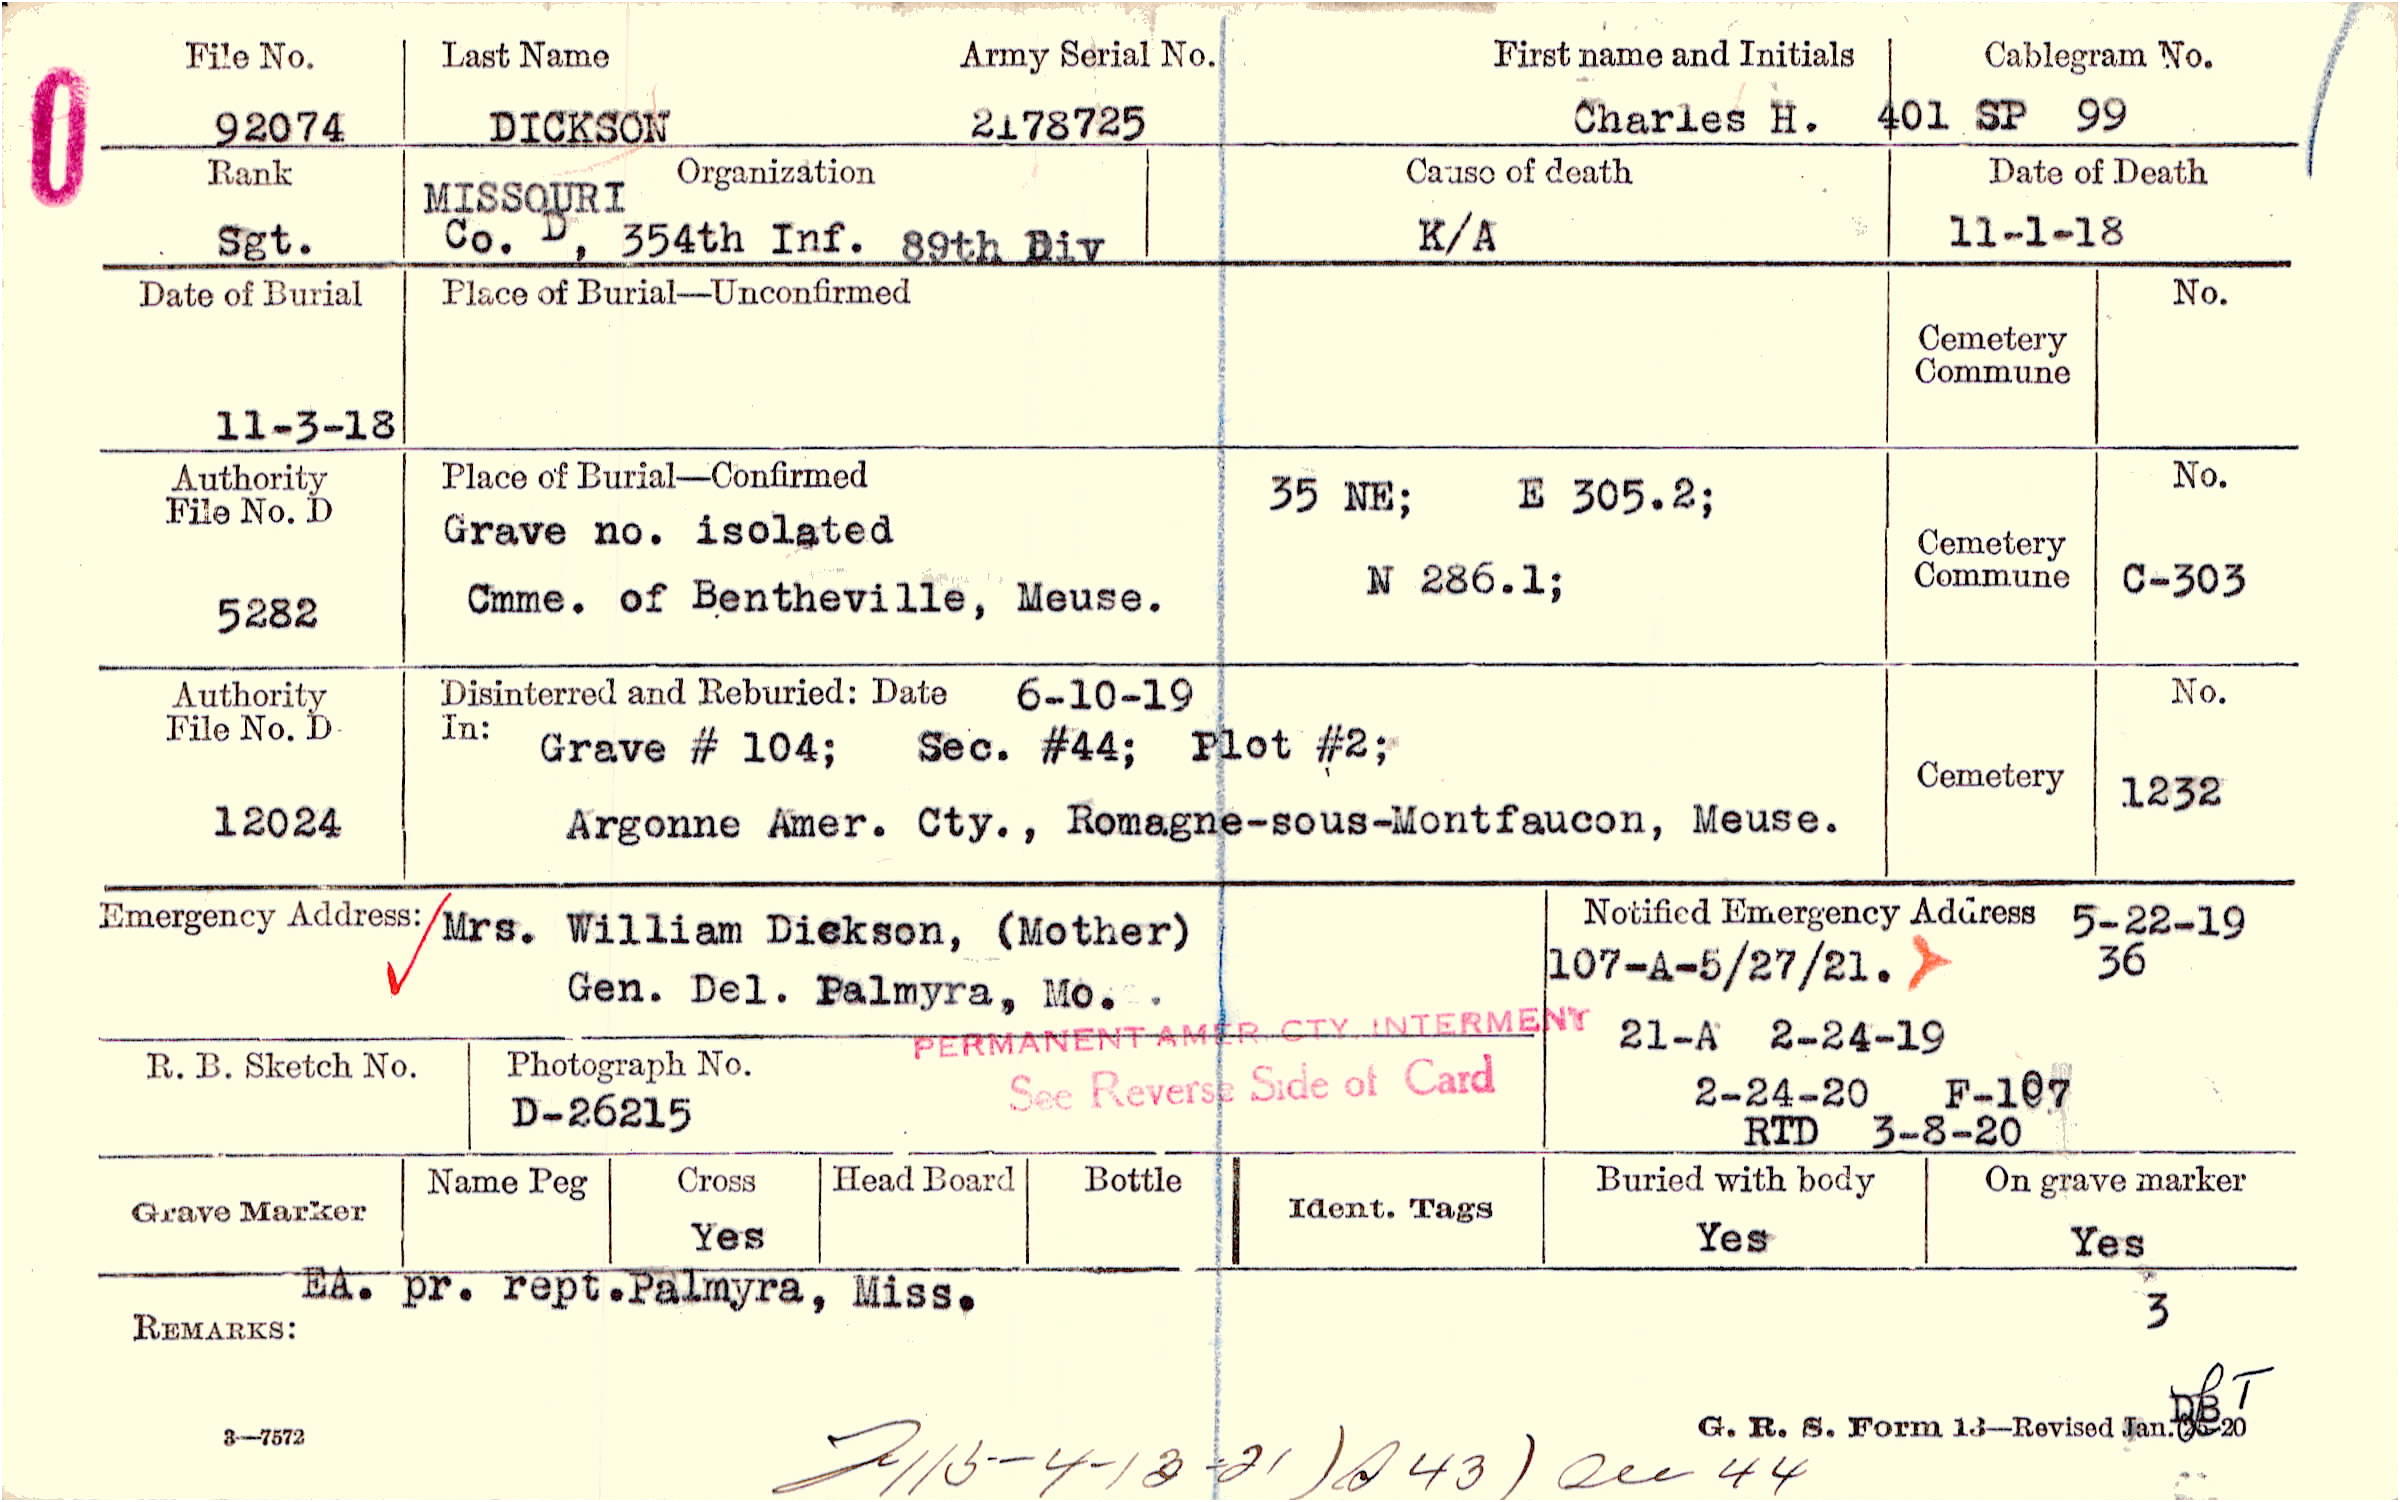 File No. Last Name Army Serial No. First name and Initials Cablegram No.
92074 DICKSON 2178725 Charles H. 401 SP 99
Rank Organization Cause of death Date of Death
MISSOURI
Sgt. Co. D, 354th Inf. 89th Div K/A 11-1-18
Date of Burial Place of Burial—Unconfirmed No.
Cemetery
Commune
11-3-18
Authority Place of Burial—Confirmed 35 NE; E 305.2; No.
File No. D Grave no. isolated
Cemetery
5282 Cmme. of Bentheville, Meuse. N 286.1; Commune C-303
Authority Disinterred and Reburied: Date 6-10-19 No.
File No. D In: Grave # 104; Sec. #44; Plot #2;
Cemetery 1232
12024 Argonne Amer. Cty., Romagne-sous-Montfaucon, Meuse.
Emergency Address: Mrs. William Dickson, (Mother) Notified Emergency Address 5-22-19
107-A-5/27/21. 36
Gen. Del. Palmyra, Mo.
PERMANENT AMER. CTY. INTERMENT 21-A 2-24-19
R. B. Sketch No. Photograph No. See Reverse Side of Card
D-26215 2-24-20 F-107
RTD 3-8-20
Grave Marker Name Peg Cross Head Board Bottle Ident. Tags Buried with body On grave marker
Yes Yes Yes
EA. pr. rept. Palmyra, Miss. 3
REMARKS:
3—7572 G. R. S. Form 13—Revised Jan. -20
44